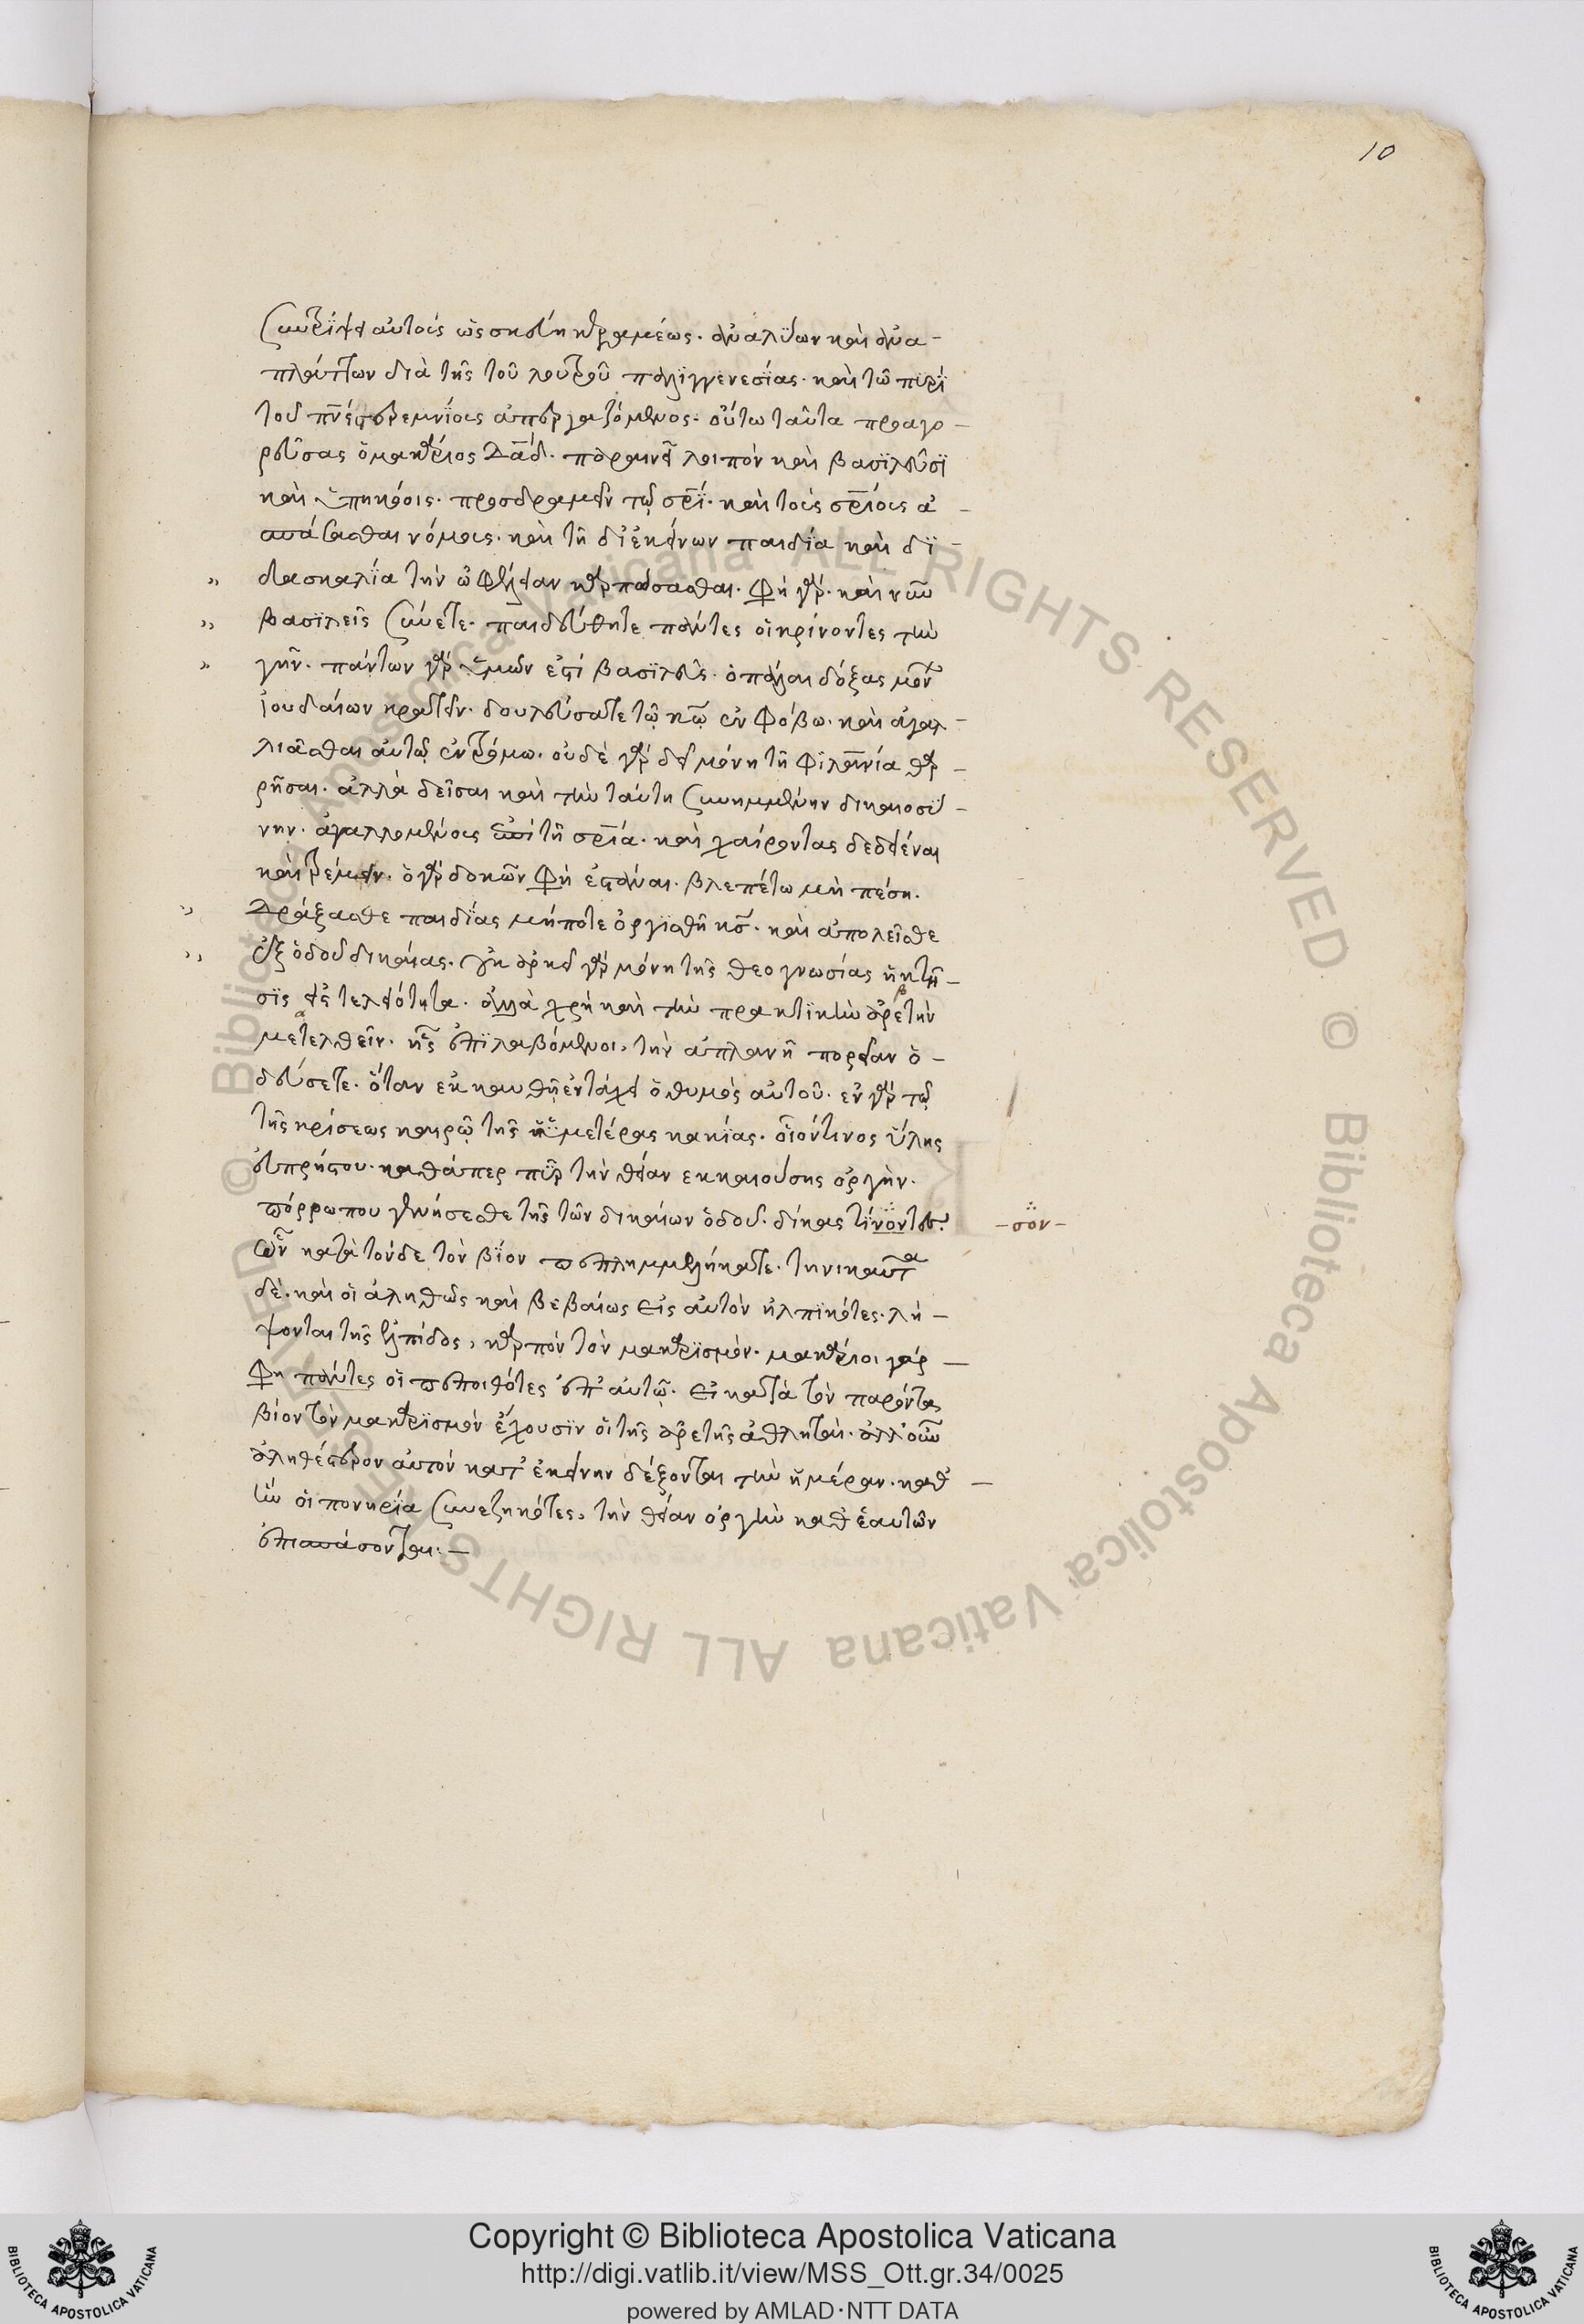 10
συντρίψει αὐτοὺς ὡς σκεύη κεραμέως. ἀναλύων καὶ ἀνα-
πλάττων διὰ τῆς τοῦ λουτροῦ παλιγγενεσίας. καὶ τῶ πυρὶ
τοῦ πνς στερεμνίους ἀπεργαζόμενος. οὕτω ταῦτα προαγο-
ρεύσας ὁ μακάριος Δαδ. παραινεῖ λοιπὸν καὶ βασϊλεῦσϊ
καὶ ὑπηκόοις. προσδραμεῖν τῷ σρϊ. καὶ τοὺς σρίους ἀ-
σπάσασθαι νόμους. καὶ τῆ δι' ἐκείνων παιδία καὶ δϊ-
" δασκαλΐα τὴν ὠφέλειαν καρπώσασθαι. φη γάρ. καὶ νῦν
" βασϊλεῖς σύνετε. παιδεύθητε πάντες οἱ κρίνοντες τὴν
" γῆν. πάντων γὰρ ὑμῶν ἐστὶ βασϊλεὺς. ὁ πάλαι δόξας μόνον
ἰουδαίων κρατεῖν. δουλεύσατε τῶ κω ἐν φόβω. καὶ ἀγαλ-
λιᾶσθαι αὐτῶ ἐν τρόμω. οὐδὲ γὰρ δεῖ μόνη τῆ φιλανία θαρ-
ρῆσαι. ἀλλὰ δεῖσαι καὶ τὴν ταύτη συνημμένην δικαιοσύ-
νην. ἀγαλλομένους ἐπὶ τῆ σρία. καὶ χαίροντας δεδιέναι
καὶ τρέμειν. ὁ γὰρ δοκῶν φη ἑστάναι. βλεπέτω μὴ πέση.
" Δράξασθε παιδίας μήποτε ὀργισθῆ κς. καὶ ἀπολεῖσθε
" ἐξ ὁδοῦ δικαίας. οὐκ ἀρκεῖ γὰρ μόνη τῆς θεογνωσίας ἡ κτῆ-
σϊς εἰς τελειότητα. ἀλλὰ χρὴ καὶ τὴν πρακτϊκὴν ἀρετὴν
μετελθεῖν. ἧς ἐπϊλαβόμενοι, τὴν ἀπλανῆ πορείαν ὁ-
δεύσετε. ὅταν ἐκκαυθῆ ἐν τάχει ὁ θυμὸς αὐτοῦ. ἐν γὰρ τῷ
τῆς κρίσεως καιρῷ τῆς ἡμετέρας κακΐας. οἱόν τινος ὕλης
εὐπρήστου. καθάπερ πῦρ τὴν θείαν ἐκκαιούσης ὀργὴν.
πόρρω που γενήσεσθε τῆς τῶν δικαίων ὁδοῦ. δίκας τίνοντες.
-σόν-
ὧν κατὰ τόνδε τὸν βΐον πεπλημμελήκατε. τηνικαῦτα
δὲ. καὶ οἱ ἀληθῶς καὶ βεβαίως εἰς αὐτὸν ἠλπϊκότες. λή-
ψονται τῆς ἐλπίδος, καρπὸν τὸν μακαρϊσμόν. μακάριοι γάρ
φη πάντες οἱ πεποιθότες ἐπ' αὐτῶ. εἰ κατὰ τὸν παρόντα
βίον τὸν μακαρϊσμὸν ἔχουσϊν οἱ τῆς ἀρετῆς ἀθληταὶ. ἀλλ' οὖν
ἀληθέστερον αὐτὸν κατ' ἐκείνην δέξονται τὴν ἡμέραν. καθ'
ἣν οἱ πονηρία συνεζηκότες, τὴν θείαν ὀργὴν καθ' ἑαυτῶν
ἐπισπάσονται.
Copyright © Biblioteca Apostolica Vaticana
http://digi.vatlib.it/view/MSS_Ott.gr.34/0025
powered by AMLAD·NTT DATA
BIBLIOTECA APOSTOLICA VATICANA
BIBLIOTECA APOSTOLICA VATICANA
© Biblioteca Apostolica Vaticana ALL RIGHTS RESERVED © Biblioteca Apostolica Vaticana ALL RIGHTS RESERVED